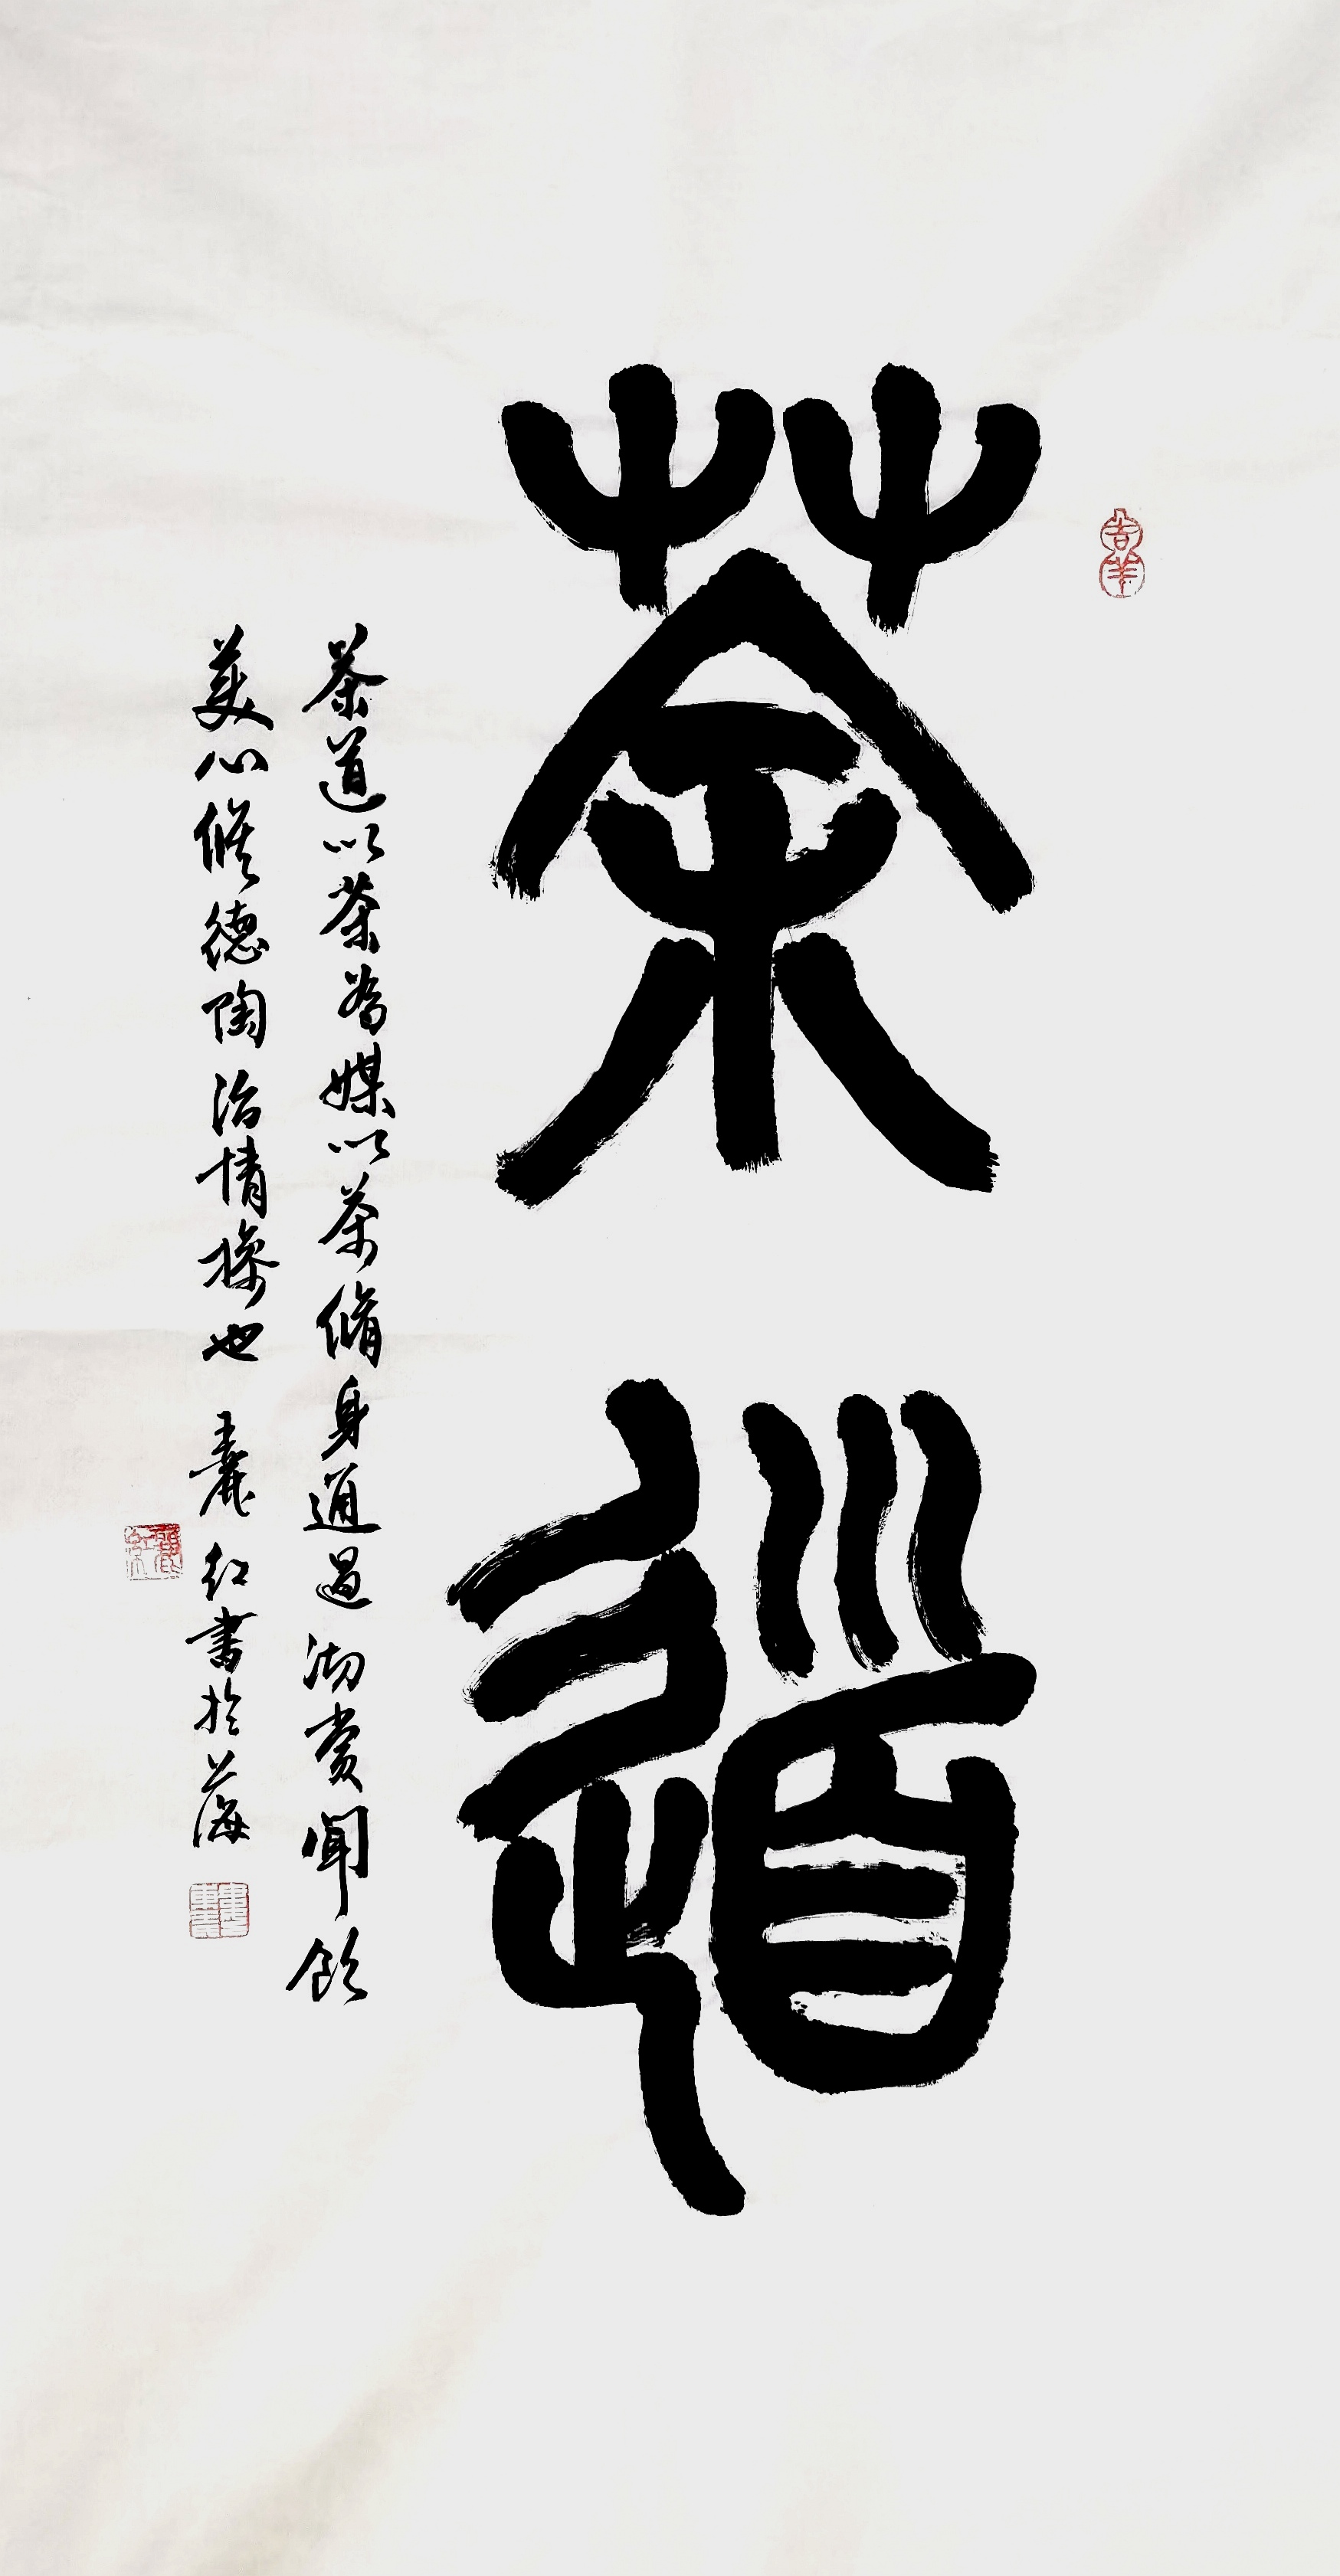 茶道
茶道以茶為媒以茶脩身通過沏賞聞飲
美心脩德陶冶情操也 麗紅書於上海
吉羊
麗紅